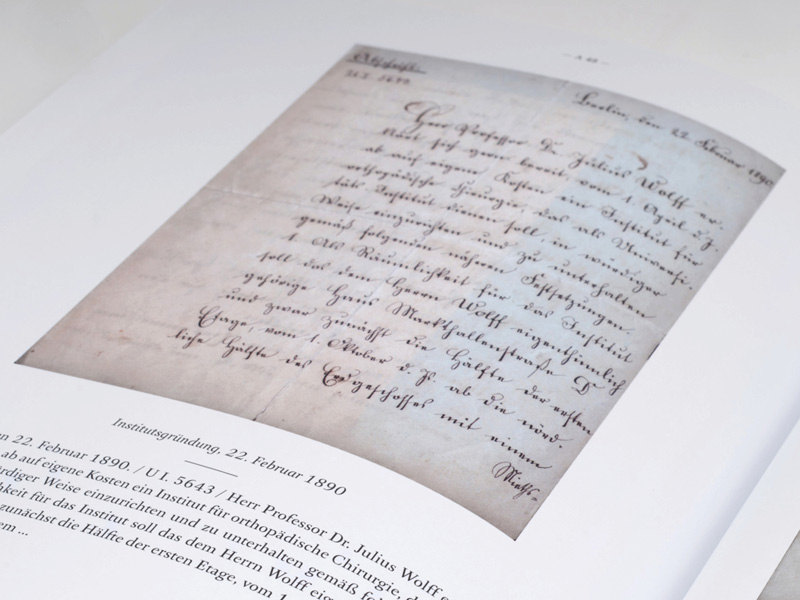 — A 48 —
Abschrift.
U.I. 5643.
Berlin, den 22. Februar 1890
Herr Professor Dr. Julius Wolff er-
klärt sich gern bereit vom 1. April d. J.
ab auf eigene Kosten ein Institut für
orthopädische Chirurgie, das als Universi-
täts Institut dienen soll, in würdiger
Weise einzurichten und zu unterhalten
gemäß folgenden nähren Festsetzungen.
1. Als Räumlichkeit für das Institut
soll das dem Herrn Wolff eigenthümlich
gehörige Haus Markthallenstraße
und zwar zunächst die Hälfte der ersten
Etage, vom 1. Oktober d. Js. ab die nörd-
liche Hälfte des Erdgeschosses mit einem
Mieths-
Institutsgründung, 22. Februar 1890
n 22. Februar 1890. / U I. 5643 / Herr Professor Dr. Julius Wolff e
ab auf eigene Kosten ein Institut für orthopädische Chirurgie, d
ürdiger Weise einzurichten und zu unterhalten gemäß fol
hkeit für das Institut soll das dem Herrn Wolff eig
zunächst die Hälfte der ersten Etage, vom 1
em ...